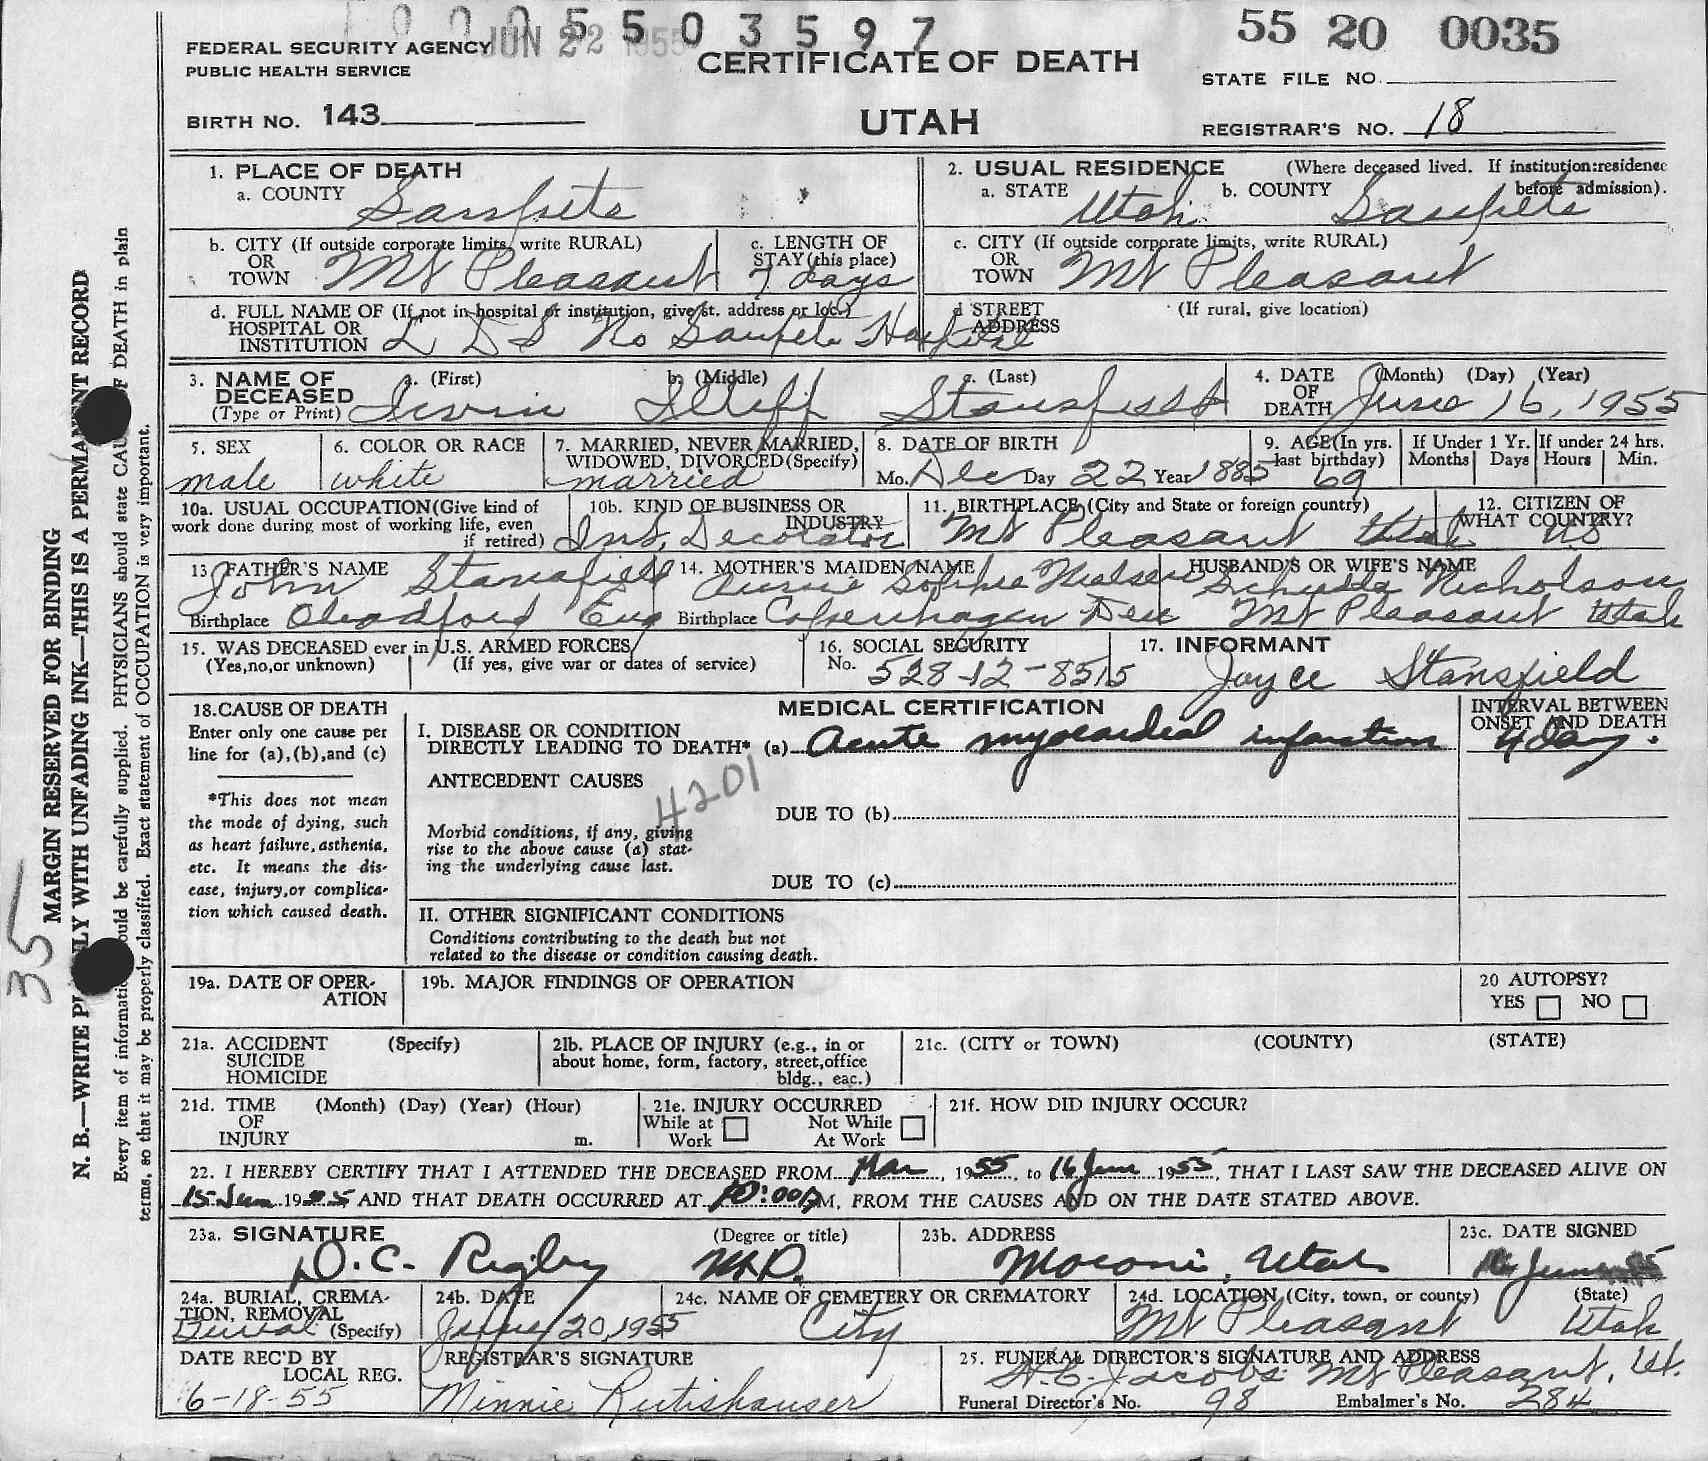 0005503597
JUN 22 1955
55 20 0035
FEDERAL SECURITY AGENCY
PUBLIC HEALTH SERVICE
CERTIFICATE OF DEATH
STATE FILE NO.
BIRTH NO. 143
UTAH
REGISTRAR'S NO. 18
1. PLACE OF DEATH
a. COUNTY Sanpete
2. USUAL RESIDENCE (Where deceased lived. If institution:residence before admission).
a. STATE Utah b. COUNTY Sanpete
b. CITY (If outside corporate limits, write RURAL)
OR
TOWN Mt Pleasant
c. LENGTH OF
STAY (this place)
7 days
c. CITY (If outside corporate limits, write RURAL)
OR
TOWN Mt Pleasant
d. FULL NAME OF (If not in hospital or institution, give st. address or loc.)
HOSPITAL OR
INSTITUTION L D S No Sanpete Hospital
d STREET
ADDRESS
(If rural, give location)
3. NAME OF
DECEASED
(Type or Print)
a. (First) b. (Middle) c. (Last)
Irvin Iliff Stansfield
4. DATE
OF
DEATH
(Month) (Day) (Year)
June 16, 1955
5. SEX
male
6. COLOR OR RACE
white
7. MARRIED, NEVER MARRIED,
WIDOWED, DIVORCED (Specify)
married
8. DATE OF BIRTH
Mo. Dec Day 22 Year 1885
9. AGE (In yrs.
last birthday)
69
If Under 1 Yr.
Months Days
If under 24 hrs.
Hours Min.
10a. USUAL OCCUPATION (Give kind of
work done during most of working life, even
if retired)
10b. KIND OF BUSINESS OR
INDUSTRY
Int. Decorator
11. BIRTHPLACE (City and State or foreign country)
Mt Pleasant Utah
12. CITIZEN OF
WHAT COUNTRY?
US
13 FATHER'S NAME
John Stansfield
Birthplace Bradford Eng
14. MOTHER'S MAIDEN NAME
Annie Sophie Nielsen
Birthplace Copenhagen Den
HUSBAND'S OR WIFE'S NAME
Nicholson
Mt Pleasant Utah
15. WAS DECEASED ever in U.S. ARMED FORCES
(Yes,no,or unknown) (If yes, give war or dates of service)
16. SOCIAL SECURITY
No. 528-12-8515
17. INFORMANT
Joyce Stansfield
18. CAUSE OF DEATH
Enter only one cause per
line for (a),(b),and (c)
*This does not mean
the mode of dying, such
as heart failure, asthenia,
etc. It means the dis-
ease, injury,or complica-
tion which caused death.
MEDICAL CERTIFICATION
I. DISEASE OR CONDITION
DIRECTLY LEADING TO DEATH* (a) Acute myocardial infarction
INTERVAL BETWEEN
ONSET AND DEATH
4 days.
ANTECEDENT CAUSES
4201
DUE TO (b)
Morbid conditions, if any, giving
rise to the above cause (a) stat-
ing the underlying cause last.
DUE TO (c)
II. OTHER SIGNIFICANT CONDITIONS
Conditions contributing to the death but not
related to the disease or condition causing death.
19a. DATE OF OPER-
ATION
19b. MAJOR FINDINGS OF OPERATION
20 AUTOPSY?
YES NO
21a. ACCIDENT (Specify)
SUICIDE
HOMICIDE
21b. PLACE OF INJURY (e.g., in or
about home, form, factory, street,office
bldg., eac.)
21c. (CITY or TOWN) (COUNTY) (STATE)
21d. TIME (Month) (Day) (Year) (Hour)
OF
INJURY m.
21e. INJURY OCCURRED
While at Not While
Work At Work
21f. HOW DID INJURY OCCUR?
22. I HEREBY CERTIFY THAT I ATTENDED THE DECEASED FROM Mar, 1955, to 16 June 1955, THAT I LAST SAW THE DECEASED ALIVE ON
15 Jun 1955 AND THAT DEATH OCCURRED AT 10:00 P M, FROM THE CAUSES AND ON THE DATE STATED ABOVE.
23a. SIGNATURE (Degree or title)
D.C. Rigby M.D.
23b. ADDRESS
Moroni, Utah
23c. DATE SIGNED
16 June
24a. BURIAL, CREMA-
TION, REMOVAL
Burial (Specify)
24b. DATE
June 20, 1955
24c. NAME OF CEMETERY OR CREMATORY
City
24d. LOCATION (City, town, or county) (State)
Mt Pleasant Utah
DATE REC'D BY
LOCAL REG.
6-18-55
REGISTRAR'S SIGNATURE
Minnie Rutishauser
25. FUNERAL DIRECTOR'S SIGNATURE AND ADDRESS
Jacobs Mt Pleasant, Ut.
Funeral Director's No. 98 Embalmer's No. 284
35
MARGIN RESERVED FOR BINDING
N. B.—WRITE LY WITH UNFADING INK—THIS IS A PERMANENT RECORD
Every item of informati ould be carefully supplied. PHYSICIANS should state CAU F DEATH in plain
terms, so that it may be properly classified. Exact statement of OCCUPATION is very important.